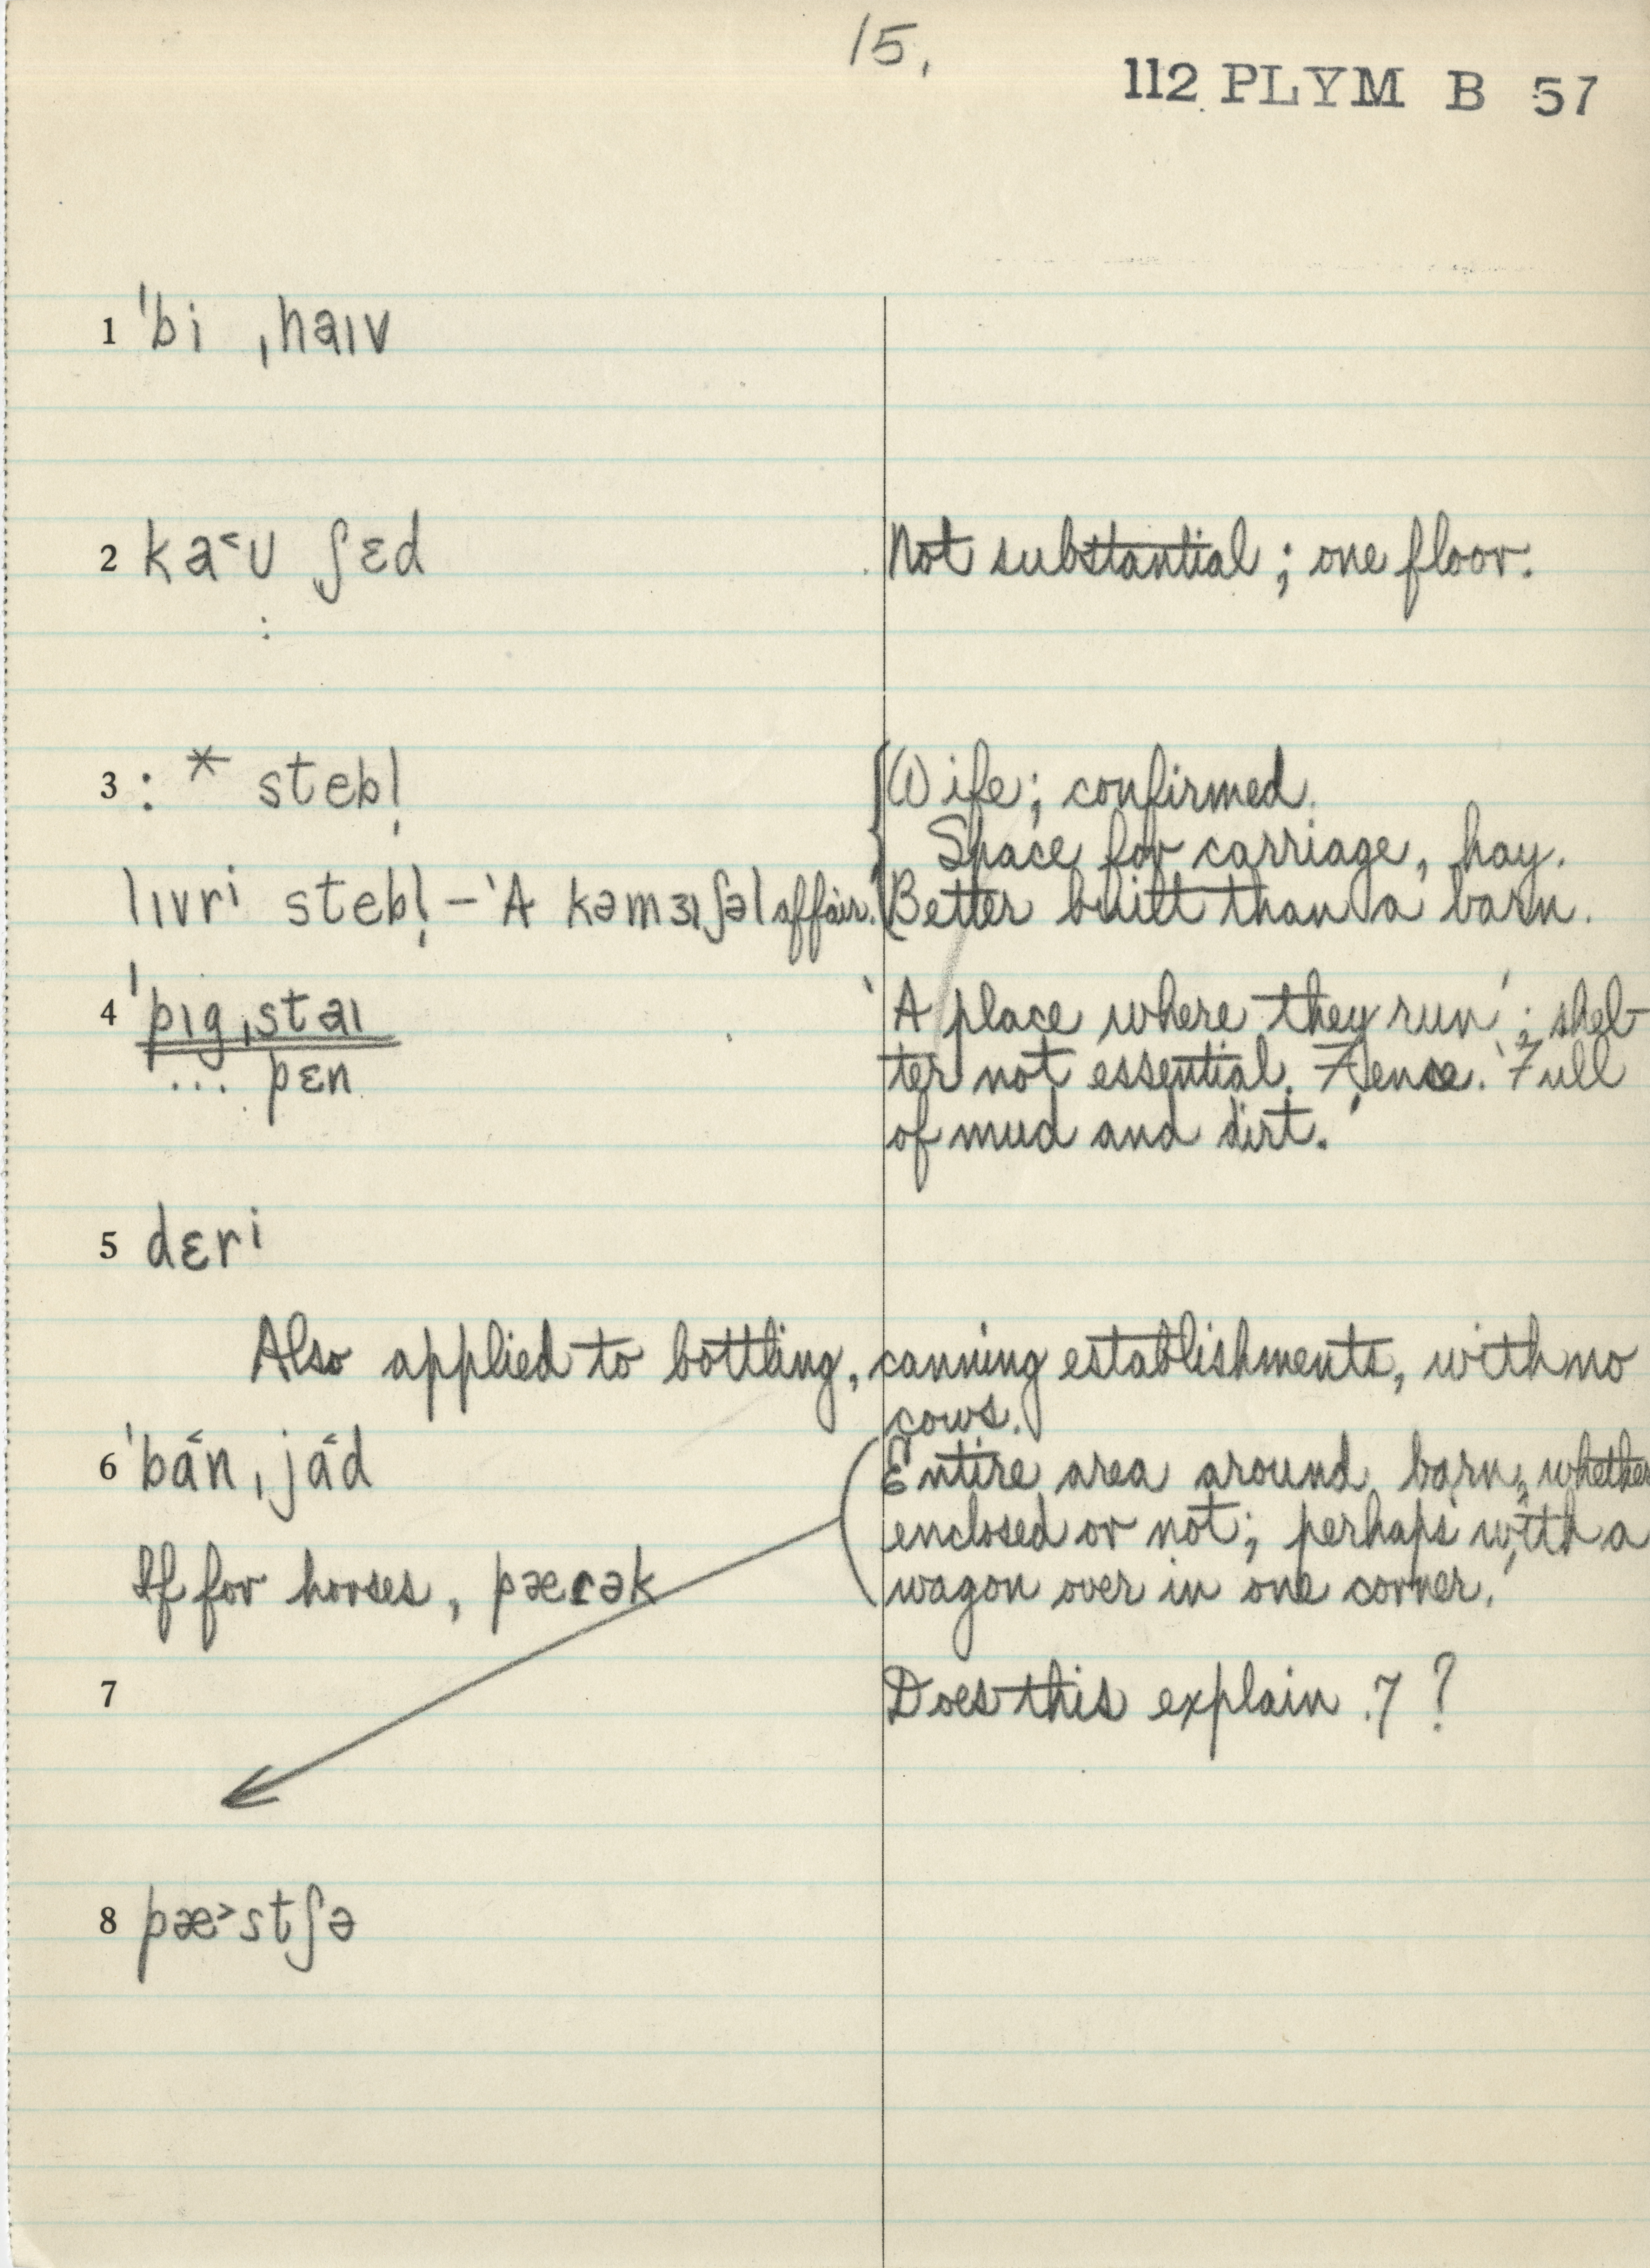 15.
112 PLYM B 57
1 ˈbi ˌhaɪv
2 ka˂ʊ ʃɛd Not substantial; one floor.
:
3 : * stebl̩ Wife; confirmed.
Space for carriage, hay.
lɪvrⁱ stebl̩ – 'A kəmɜɪʃəl affair.' Better built than a barn.
4 ˈpɪgˌstaɪ 'A place where they run'; shel-
... pɛn ter not essential. Fence. 'Full
of mud and dirt.'
5 dɛrⁱ
Also applied to bottling, canning establishments, with no
cows.
6 ˈba˂nˌja˂d Entire area around barn, whether
enclosed or not; perhaps 'with a
If for horses, pærək wagon over in one corner.'
7 Does this explain .7?
8 pæ˃stʃə